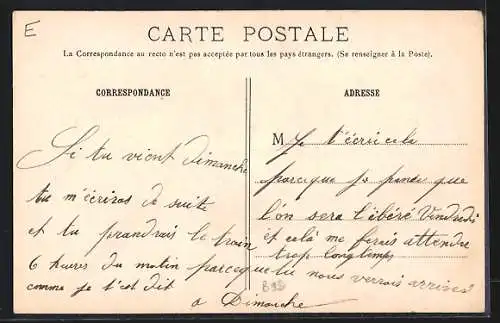 E
CARTE POSTALE
La Correspondance au recto n'est pas acceptée par tous les pays étrangers. (Se renseigner à la Poste).
CORRESPONDANCE
Si tu vient Dimanche
tu m'écriras de suite
et tu prandrais le train
6 heures du matin parceque
comme je t'est dit
a Dimanche
ADRESSE
M Je t'écrit cela
parceque je pense que
l'on sera libéré Vendredi
et celà me ferais attendre
trop longtemps
tu nous verrais arrivés
B95